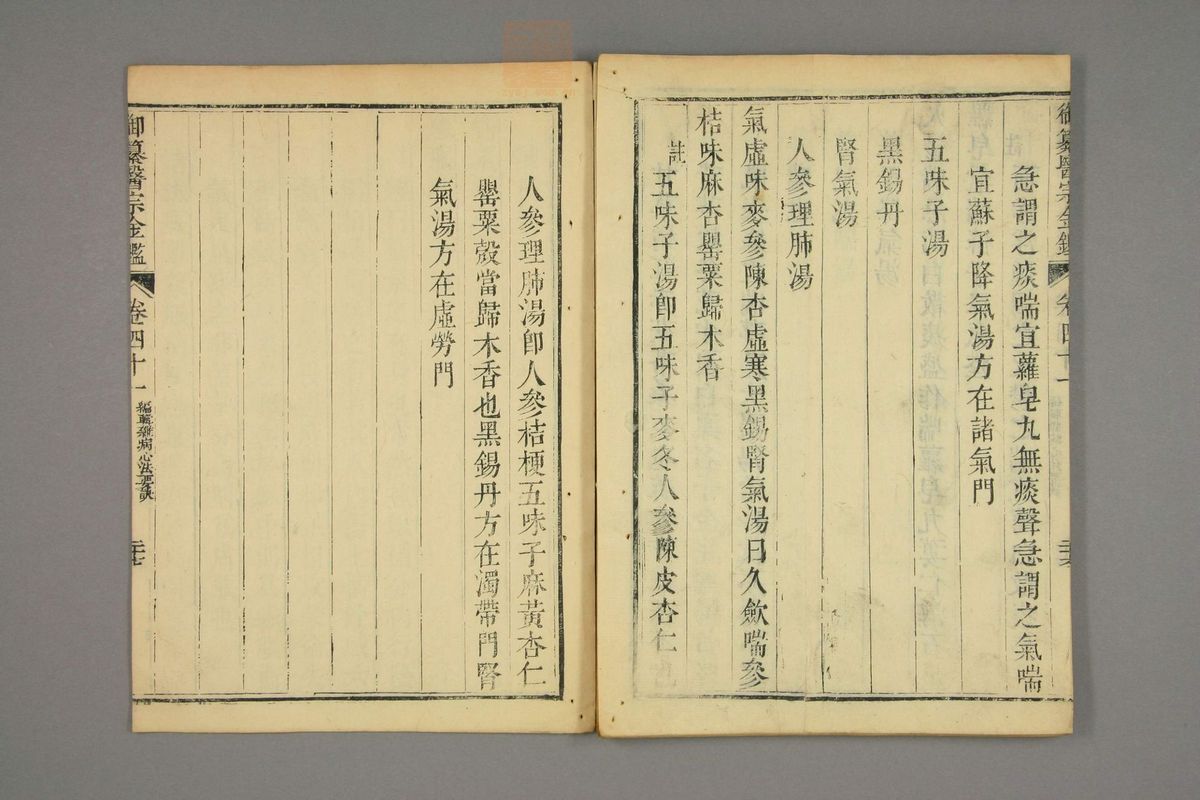 御纂醫宗金鑑
卷四十一
急謂之痰喘宜蘿皂丸無痰聲急謂之氣喘
宜蘇子降氣湯方在諸氣門
五味子湯
黑錫丹
腎氣湯
人參理肺湯
氣虛味麥參陳杏虛寒黑錫腎氣湯日久斂喘參
桔味麻杏罌粟歸木香
註 五味子湯卽五味子麥冬人參陳皮杏仁
人參理肺湯卽人參桔梗五味子麻黃杏仁
罌粟殼當歸木香也黑錫丹方在濁帶門腎
氣湯方在虛勞門
御纂醫宗金鑑
卷四十一
編輯雜病心法要訣
二十七